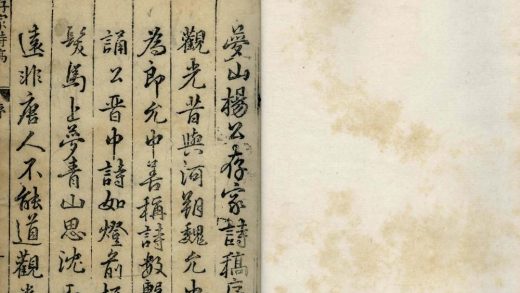 夢山楊公存家詩稿序
觀光昔與河朔魏允中
為郎允中善稱詩數
誦公晋中詩如燈前
髮馬上夢青山思沈
遠非唐人不能道觀光